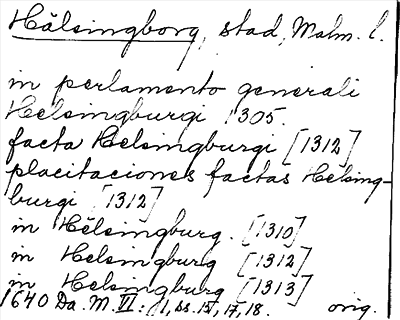 Hälsingborg, stad, Malm. l.
in perlamento generali
Helsingburgi 1305.
facta Helsingburgi [1312]
placitaciones factas Helsing-
burgi [1312]
in Helsingburg. [1310]
in Helsingburg [1312]
in Helsingburg [1313]
1640 Da. M. III: 1, ss. 15, 17, 18. orig.